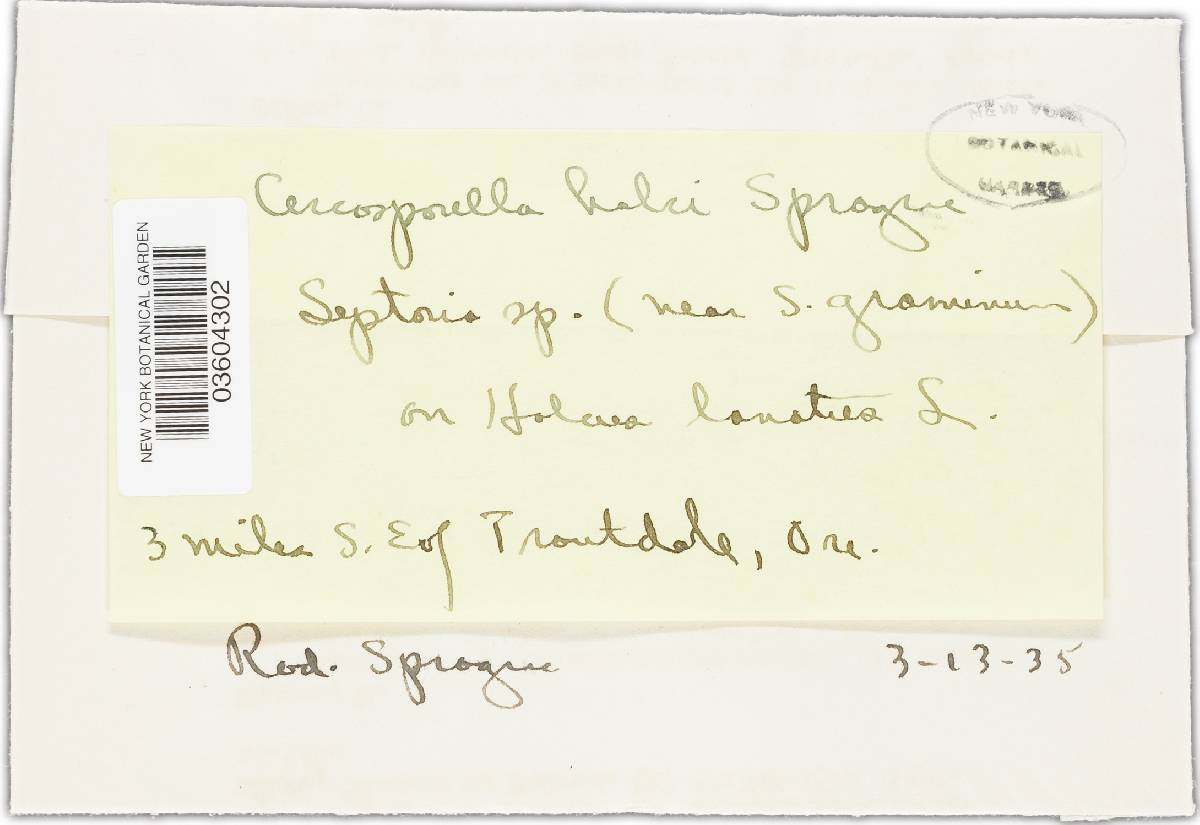 NEW YORK
BOTANICAL
GARDEN
Cercosporella holci Sprague
Septoria sp. (near S. graminum)
on Holcus lanatus L.
3 miles S. E of Troutdale, Ore.
Rod. Sprague 3-13-35
NEW YORK BOTANICAL GARDEN
03604302